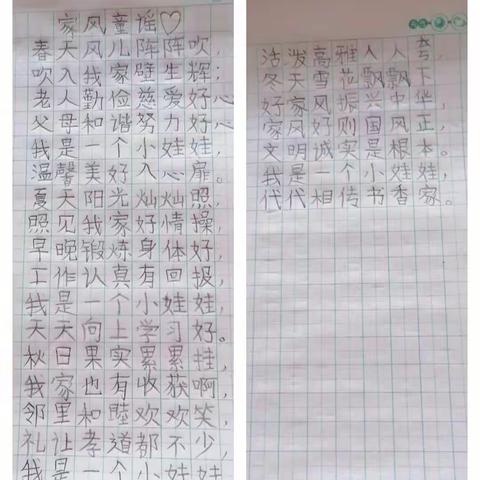 家风童谣♡
春天风儿阵阵吹,
吹入我家壁生辉;
老人勤俭慈爱好心
父母和谐努力好,
我是一个小娃娃,
温馨美好入心扉。
夏天阳光灿灿照,
照见我家好情操,
早晚锻炼身体好,
工作认真有回报,
我是一个小娃娃,
天天向上学习好。
秋日果实累累挂,
我家也有收获啊,
邻里和睦欢欢笑,
礼让孝道都不少,
我是一个小娃娃
活泼高雅人人夸,
冬天雪花飘飘下
好家风振兴中华,
家风好则国风正,
文明诚实是根本。
我是一个小娃娃,
代代相传书香家。